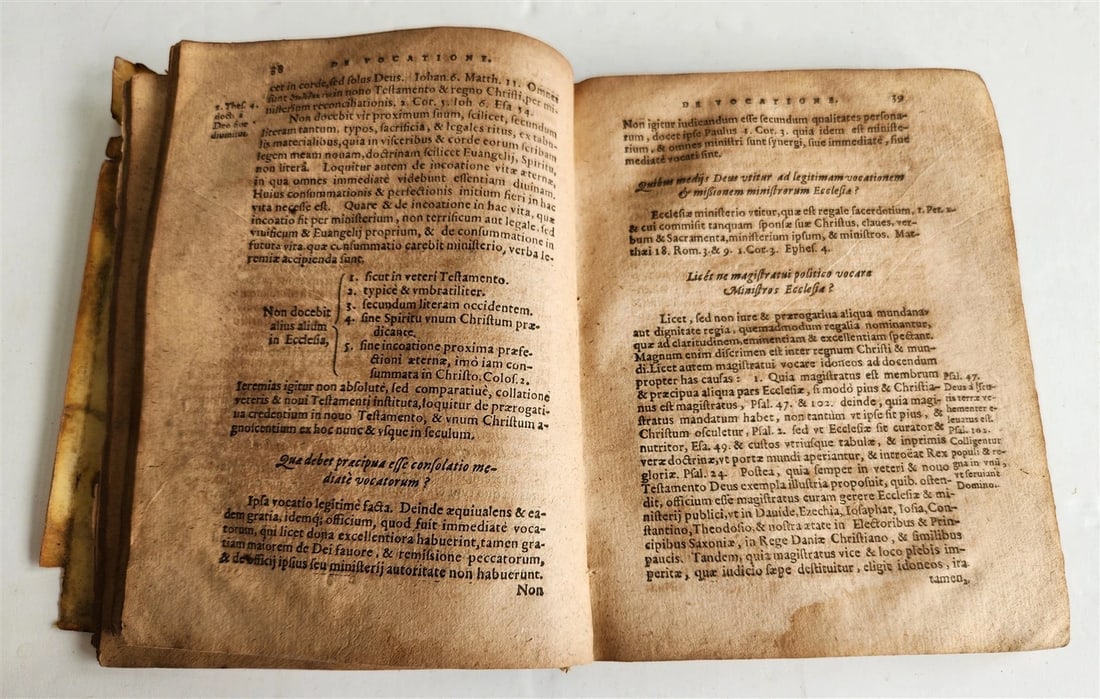 38
DE VOCATIONE.
cet in corde, sed solus Deus. Iohan. 6. Matth. 11. Omnes
sunt in nouo Testamento & regno Christi, per mi-
nisterium reconciliationis. 2. Cor. 5. Ioh 6. Esa 54.
1. Thes. 4.
docti à
Deo sue
diuinitus.
Non docebit vir proximum suum, scilicet, secundum
literam tantum, typos, sacrificia, & legales ritus, ex tabu-
lis materialibus, quia in visceribus & corde eorum scribam
legem meam nouam, doctrinam scilicet Euangelij, Spiritu,
non literâ. Loquitur autem de incoatione vitæ æternæ,
in qua omnes immediatè videbunt essentiam diuinam.
Huius consummationis & perfectionis initium fieri in hac
vita necesse est. Quare & de incoatione in hac vita, quæ
incoatio fit per ministerium, non terrificum aut legale, sed
viuificum & Euangelij proprium, & de consummatione in
futura vita. quæ consummatio carebit ministerio, verba Ie-
remiæ accipienda sunt.
Non docebit
alius alium
in Ecclesia,
1. sicut in veteri Testamento.
2. typicè & vmbratiliter.
3. secundum literam occidentem.
4. sine Spiritu vnum Christum præ-
dicante.
5. sine incoatione proxima præfe-
ctioni æternæ, imò iam con-
summata in Christo. Colos. 2.
Ieremias igitur non absolutè, sed comparatiuè, collatione
veteris & noui Testamenti instituta, loquitur de prærogati-
ua credentium in nouo Testamento, & vnum Christum a-
gnoscentium ex hoc nunc & vsque in seculum.
Quæ debet præcipua esse consolatio me-
diatè vocatorum?
Ipsa vocatio legitimè facta. Deinde æquiualens & ea-
dem gratia, idemq; officium, quod fuit immediatè voca-
torum, qui licet dona excellentiora habuerint, tamen gra-
tiam maiorem de Dei fauore, & remissione peccatorum,
& de officij ipsius seu ministerij autoritate non habuerunt.
Non
DE VOCATIONE.
39
Non igitur iudicandum esse secundum qualitates persona-
rum, docet ipse Paulus 1. Cor. 3. quia idem est ministe-
rium, & omnes ministri sunt synergi, siue immediatè, siue
mediatè vocati sint.
Quibus medijs Deus vtitur ad legitimam vocationem
& missionem ministrorum Ecclesiæ?
Ecclesiæ ministerio vtitur, quæ est regale sacerdotium, 1. Pet. 2.
& cui commisit tanquam sponsæ suæ Christus, claues, ver-
bum & Sacramenta, ministerium ipsum, & ministros. Mat-
thæi 18. Rom. 3. & 9. 1. Cor. 3. Ephes. 4.
Licét ne magistratui politico vocare
Ministros Ecclesiæ?
Licet, sed non iure & prærogatiua aliqua mundana
aut dignitate regia, quemadmodum regalia nominantur,
quæ ad claritudinem, eminenciam & excellentiam spectant.
Magnum enim discrimen est inter regnum Christi & mun-
di. Licet autem magistratui vocare idoneos ad docendum
propter has causas: 1. Quia magistratus est membrum
& præcipua aliqua pars Ecclesiæ, si modò pius & Christia-
nus est magistratus, Psal. 47. & 102. deinde, quia magi-
stratus mandatum habet, non tantum vt ipse sit pius, &
Christum osculetur, Psal. 2. sed vt Ecclesiæ sit curator &
nutritor, Esa. 49. & custos vtriusque tabulæ, & inprimis
veræ doctrinæ, vt portæ mundi aperiantur, & introëat Rex
gloriæ. Psal. 24. Postea, quia semper in veteri & nouo
Testamento Deus exempla illustria proposuit, quib. osten-
dit, officium esse magistratus curam gerere Ecclesiæ & mi-
nisterij publici, vt in Dauide, Ezechia, Iosaphat, Iosia, Con-
stantino, Theodosio, & nostra ætate in Electoribus & Prin-
cipibus Saxoniæ, in Rege Daniæ Christiano, & similibus
paucis. Tandem, quia magistratus vice & loco plebis im-
peritæ, quæ iudicio sæpe destituitur, eligit idoneos, ita
tamen,
Psal. 47.
Deus à scu-
tis terræ ve-
hementer e-
leuatus est.
Psal. 102.
Colligentur
populi & re-
gna in vnũ,
vt seruiant
Domino.